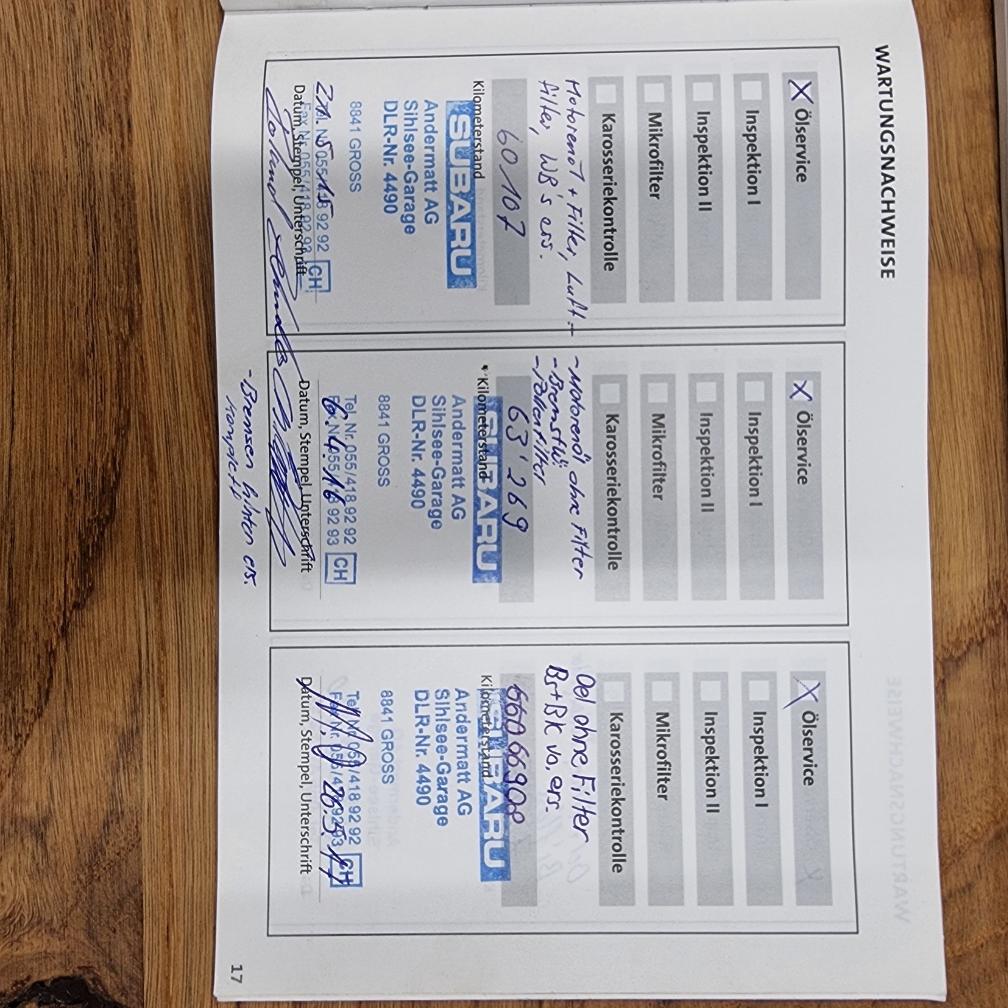 WARTUNGSNACHWEISE
X Ölservice
Inspektion I
Inspektion II
Mikrofilter
Karosseriekontrolle
Motorenöl + Filter, Luft-
filter, WB's ers.
60107
Kilometerstand
SUBARU
Andermatt AG
Sihlsee-Garage
DLR-Nr. 4490
8841 GROSS
Tel. Nr. 055/418 92 92
Fax Nr. 055/418 92 93 CH
21. 5. 15
Datum, Stempel, Unterschrift
X Ölservice
Inspektion I
Inspektion II
Mikrofilter
Karosseriekontrolle
- Motorenöl ohne Filter
- Bremsflü.
- Pollenfilter
63'269
Kilometerstand
SUBARU
Andermatt AG
Sihlsee-Garage
DLR-Nr. 4490
8841 GROSS
Tel. Nr. 055/418 92 92
Fax Nr. 055/418 92 93 CH
6. 4. 16
Datum, Stempel, Unterschrift
- Bremsen hinten ers.
komplett
X Ölservice
Inspektion I
Inspektion II
Mikrofilter
Karosseriekontrolle
Oel ohne Filter
Bs+Bk vo, ers.
66908
Kilometerstand
SUBARU
Andermatt AG
Sihlsee-Garage
DLR-Nr. 4490
8841 GROSS
Tel. Nr. 055/418 92 92
Fax Nr. 055/418 92 93 CH
26.5.17
Datum, Stempel, Unterschrift
17